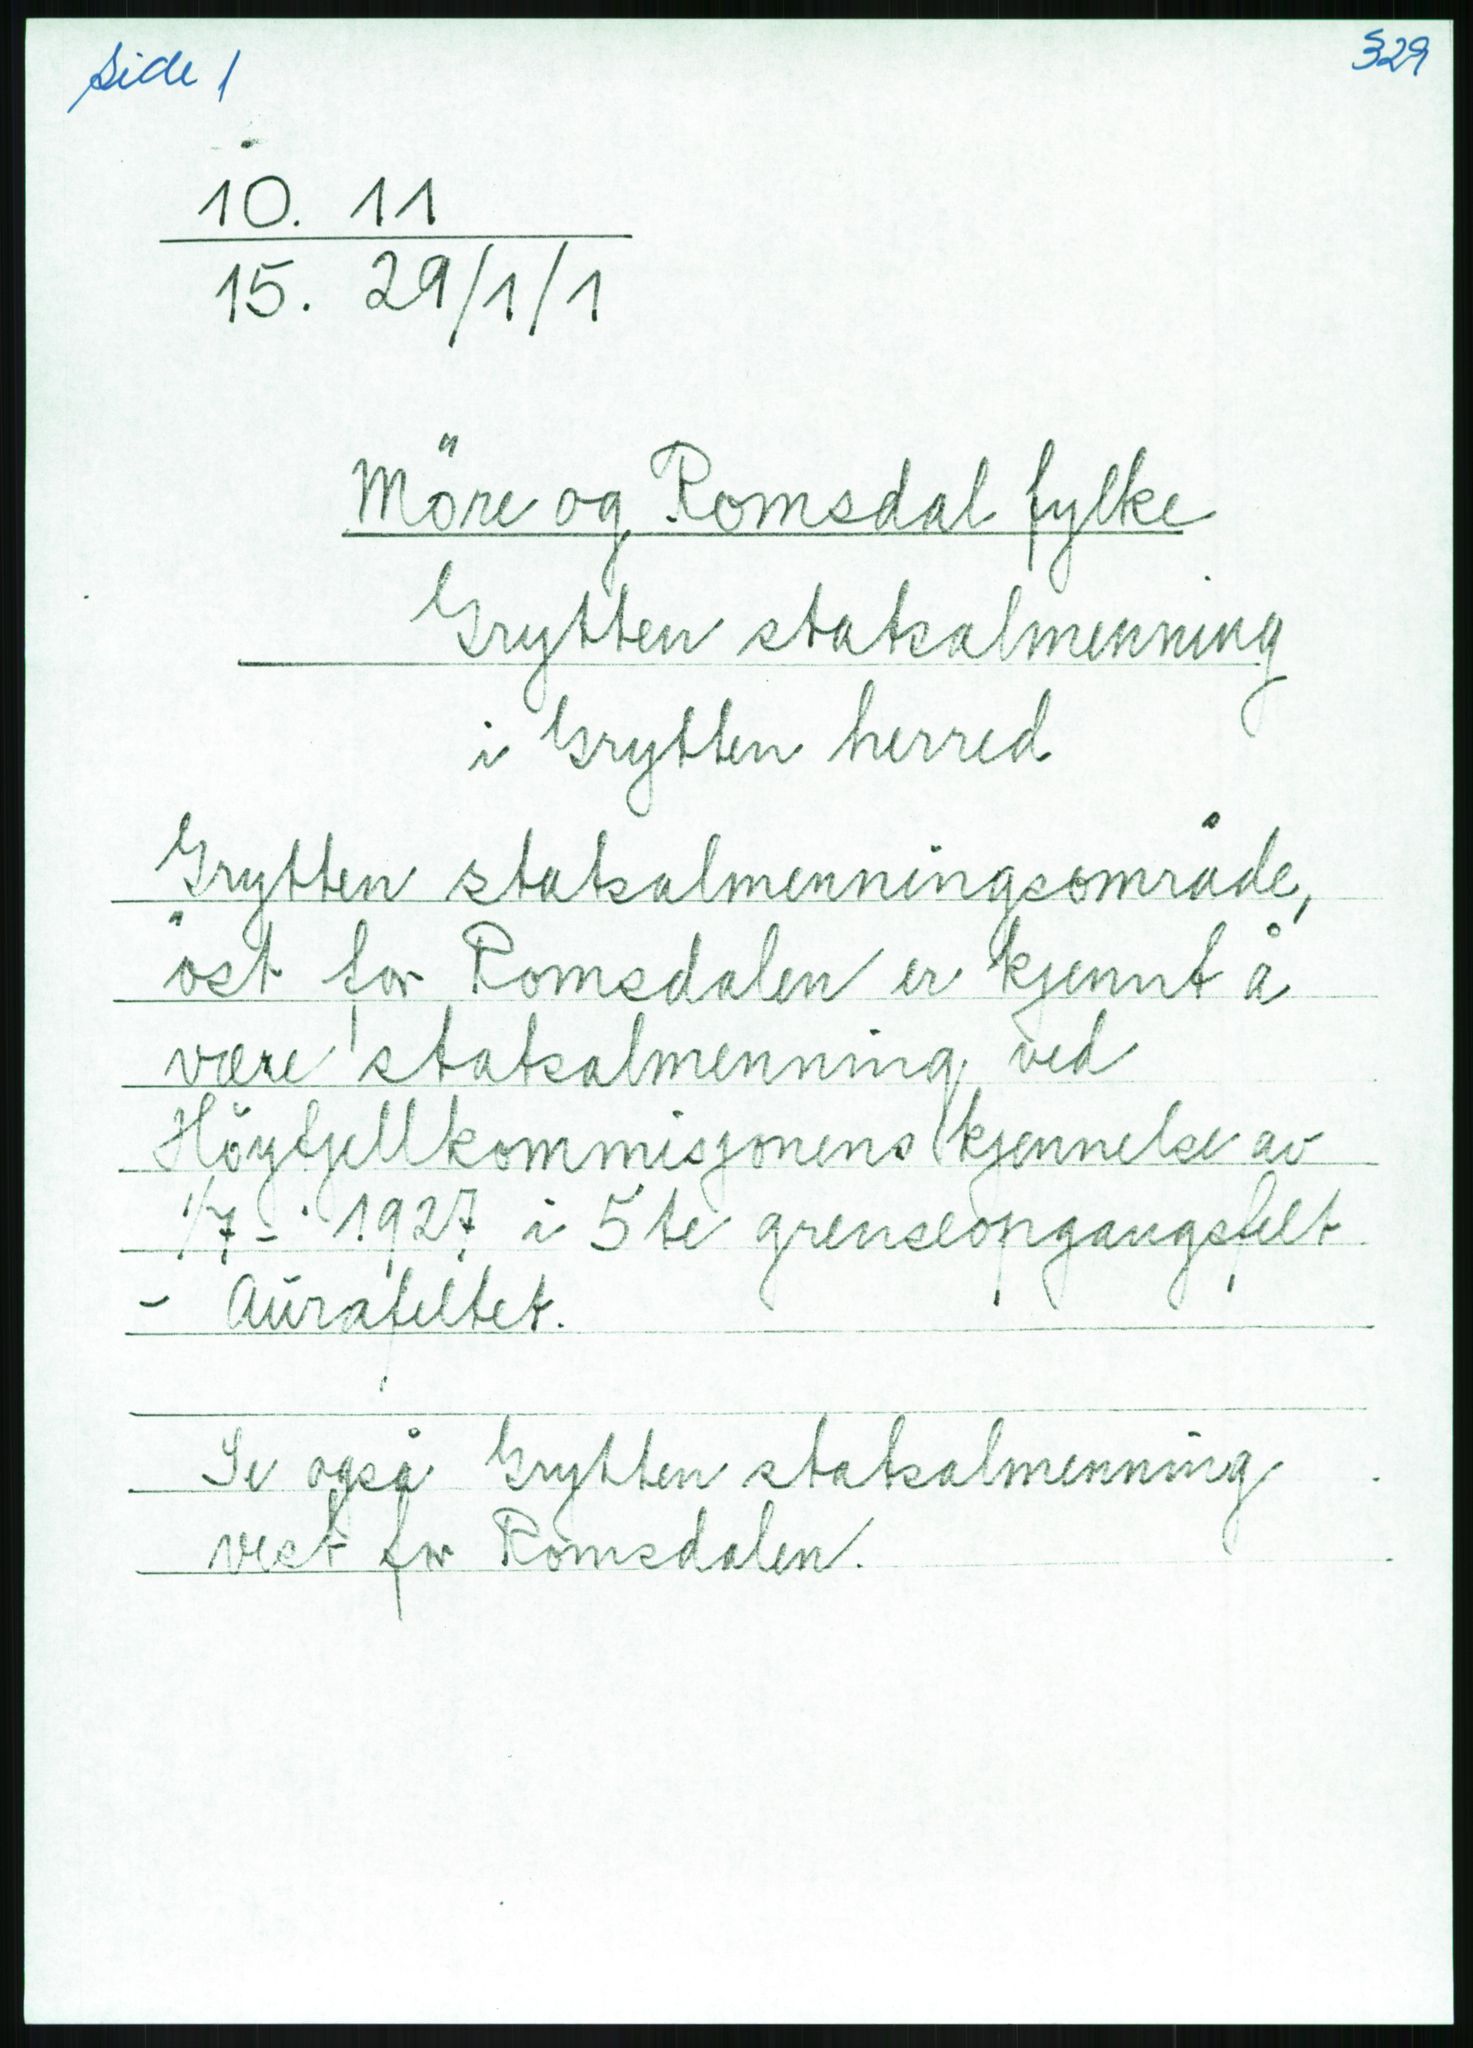 Side 1
329
10. 11
15. 29/1/1
Möre og Romsdal fylke
Grytten statsalmenning
i Grytten herred
Grytten statsalmenningsområde,
öst for Romsdalen er kjennt å
være statsalmenning ved
Höyfjellkommisjonens kjennelse av
1/7 - 1927 i 5te grenseopgangsfelt
- Aurafeltet.
Se også Grytten statsalmenning
vest for Romsdalen.